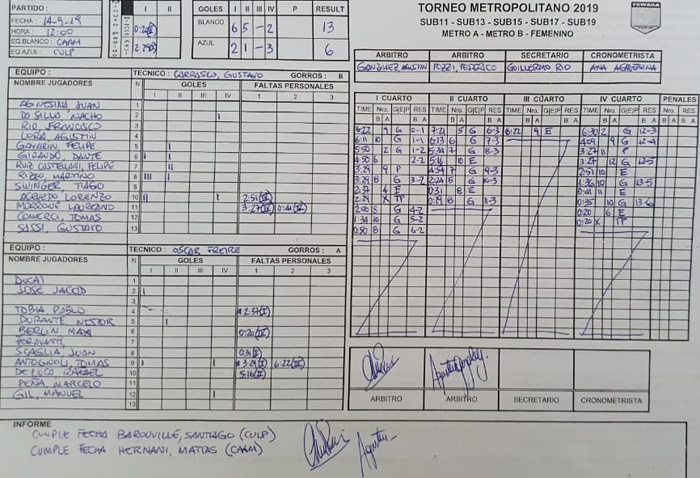 PARTIDO :
FECHA : 14-9-19
HORA : 12:00
EQ.BLANCO : CAAM
EQ.AZUL : CULP
I II
GOLES I II III IV P RESULT
BLANCO 6 5 - 2 13
AZUL 2 1 - 3 6
TORNEO METROPOLITANO 2019
SUB11 - SUB13 - SUB15 - SUB17 - SUB19
METRO A - METRO B - FEMENINO
ARBITRO ARBITRO SECRETARIO CRONOMETRISTA
GONZALEZ, AGUSTIN GUILLERMO RIO ANA
EQUIPO : TECNICO : CARRASCO, GUSTAVO GORROS : B
NOMBRE JUGADORES N GOLES FALTAS PERSONALES
I II III IV 1 2 3
JUAN 1
DI SILLO NACHO 2
RIO, FRANCISCO 3
LORA, AGUSTIN 4
GOYARIN FELIPE 5
GIRAUDO, DANTE 6
RUIZ CASTELANI, FELIPE 7
RIZZO, MARTINO 8
SWINGER, TIAGO 9
ACEVEDO LORENZO 10 2:51
MORRONE LAUREANO 11 3:27 0:44
COMERCI, TOMAS 12
SASSI, GUSTAVO 13
I CUARTO II CUARTO III CUARTO IV CUARTO PENALES
TIME Nro. G|E|P RES TIME Nro. G|E|P RES TIME Nro. G|E|P RES TIME Nro. G|E|P RES Nro. RES
B A B A B A B A B A
6:22 9 G 0-1 7:21 5 G 6-3 6:22 9 E 6:30 2 G 12-3
6:11 10 G 1-1 6:13 6 G 7-3 4:09 9 G 12-4
5:50 2 G 1-2 5:34 7 G 8-3 3:27 11 P
4:50 6 2-2 5:16 10 E 3:27 12 G 12-5
3:29 9 P 4:54 7 G 9-3 2:51 10 E
3:29 8 G 3-2 2:24 5 G 10-3 1:36 10 G 13-5
2:37 4 E 0:31 8 E 0:44 11 E
2:29 X TP 0:29 8 G 11-3 0:35 10 G 13-6
2:00 8 G 4-2 0:20 6 E
1:34 10 G 5-2 0:20 X TP
0:50 8 G 6-2
EQUIPO : TECNICO : OSCAR FREIRE GORROS : A
NOMBRE JUGADORES N GOLES FALTAS PERSONALES
I II III IV 1 2 3
DUCAI 1
JOSE JACOD 2
3
TOBIA PABLO 4 2:37
DURANTE NESTOR 5
BERLIN MAXI 6 0:20
7
SCAGLIA, JUAN 8 0:31
ANTOGNOLI, TOMAS 9 3:29 6:22
DE LUCA RAFAEL 10 5:16
PEÑA, MARCELO 11
GIL, MANUEL 12
13
ARBITRO ARBITRO SECRETARIO CRONOMETRISTA
INFORME
CUMPLE FECHA BAROUVILLE, SANTIAGO (CULP)
CUMPLE FECHA HERNANI, MATIAS (CAAM)